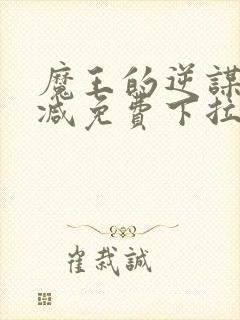 魔王的逆謀
减免費下拉
崔栽誠